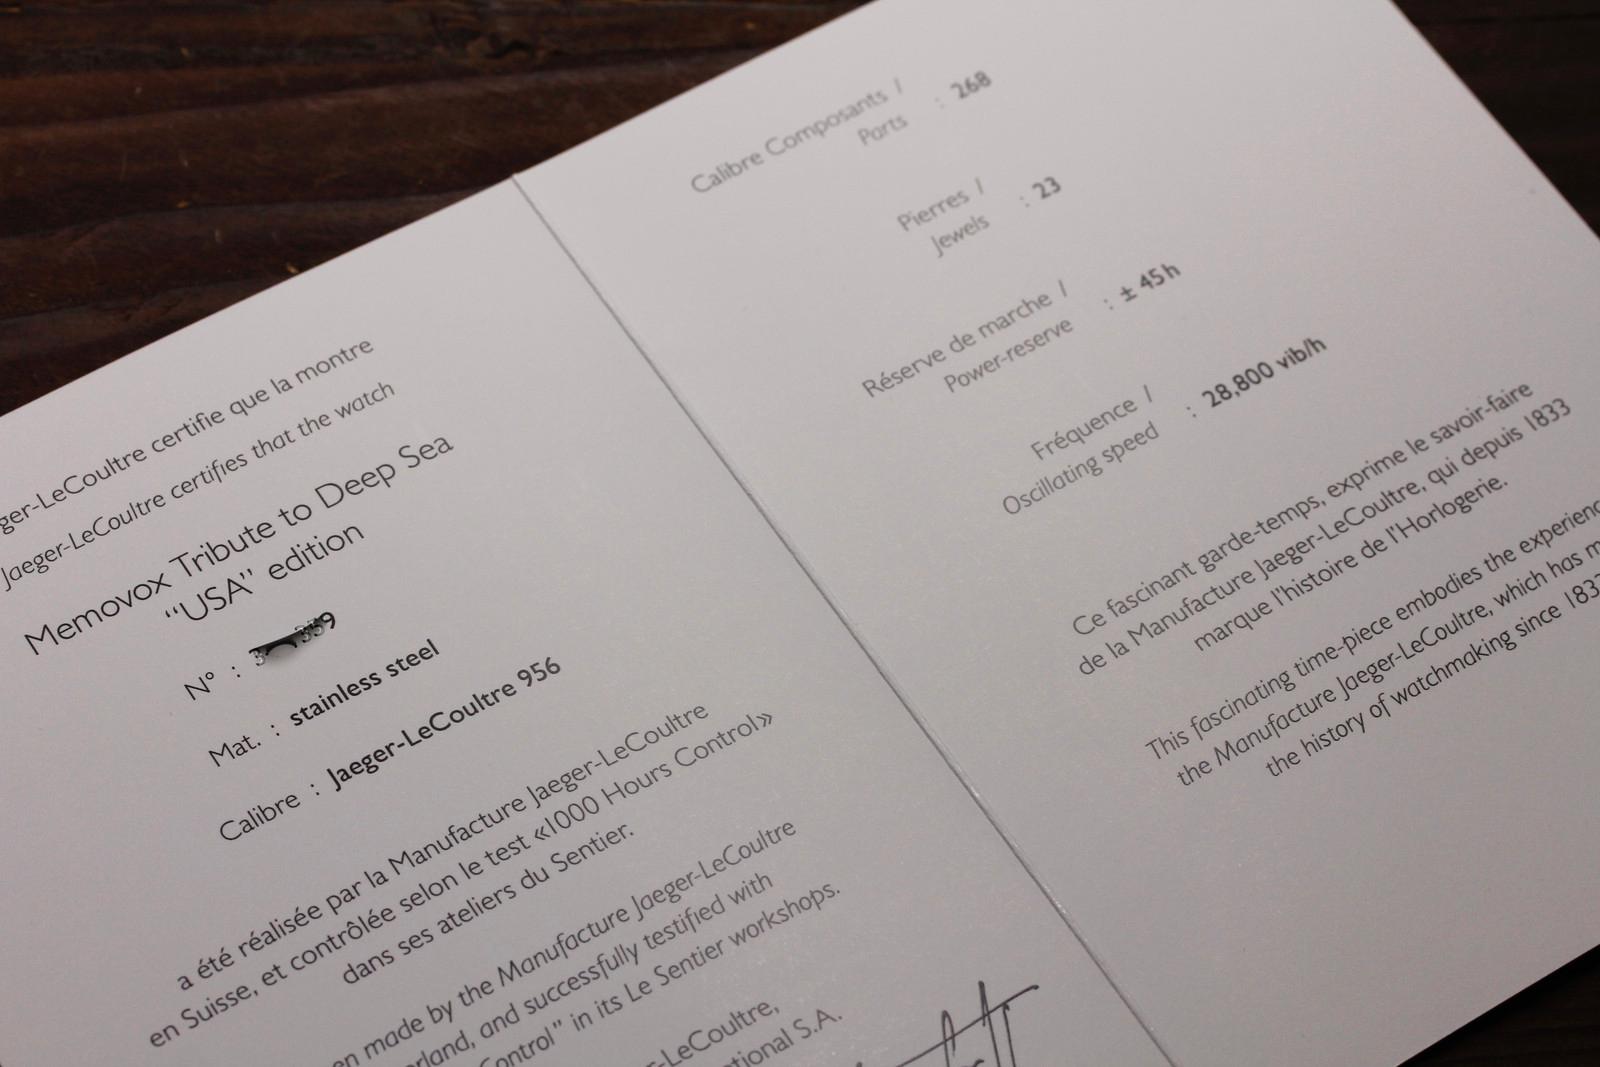 ger-LeCoultre certifie que la montre
Jaeger-LeCoultre certifies that the watch
Memovox Tribute to Deep Sea
“USA” edition
N° :
Mat. : stainless steel
Calibre : Jaeger-LeCoultre 956
a été réalisée par la Manufacture Jaeger-LeCoultre
en Suisse, et contrôlée selon le test «1000 Hours Control»
dans ses ateliers du Sentier.
en made by the Manufacture Jaeger-LeCoultre
erland, and successfully testified with
Control” in its Le Sentier workshops.
r-LeCoultre,
ational S.A.
Calibre Composants /
Parts : 268
Pierres /
Jewels : 23
Réserve de marche /
Power-reserve : ± 45 h
Fréquence /
Oscillating speed : 28,800 vib/h
Ce fascinant garde-temps, exprime le savoir-faire
de la Manufacture Jaeger-LeCoultre, qui depuis 1833
marque l'histoire de l'Horlogerie.
This fascinating time-piece embodies the experienc
the Manufacture Jaeger-LeCoultre, which has m
the history of watchmaking since 1833